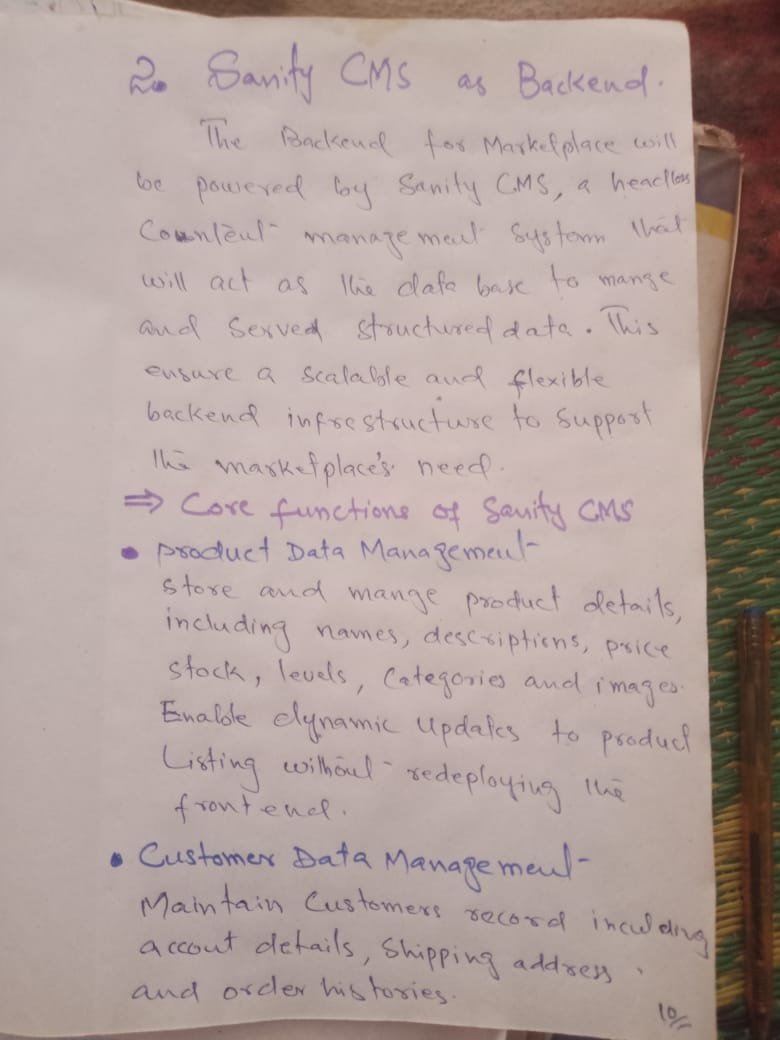 2. Sanity CMS as Backend.
The Backend for Marketplace will
be powered by Sanity CMS, a headless
Countent management system that
will act as the data base to mange
and Served structured data. This
ensure a scalable and flexible
backend infrestructure to Support
the marketplace's need.
⇒ Core functions of Sanity CMS
• product Data Management
store and mange product details,
including names, descriptions, price
stock, levels, Categories and images.
Enable dynamic updates to product
Listing without redeploying the
frontend.
• Customer Data Management
Maintain Customers record inculding
accout details, Shipping address.
and order histories.
10